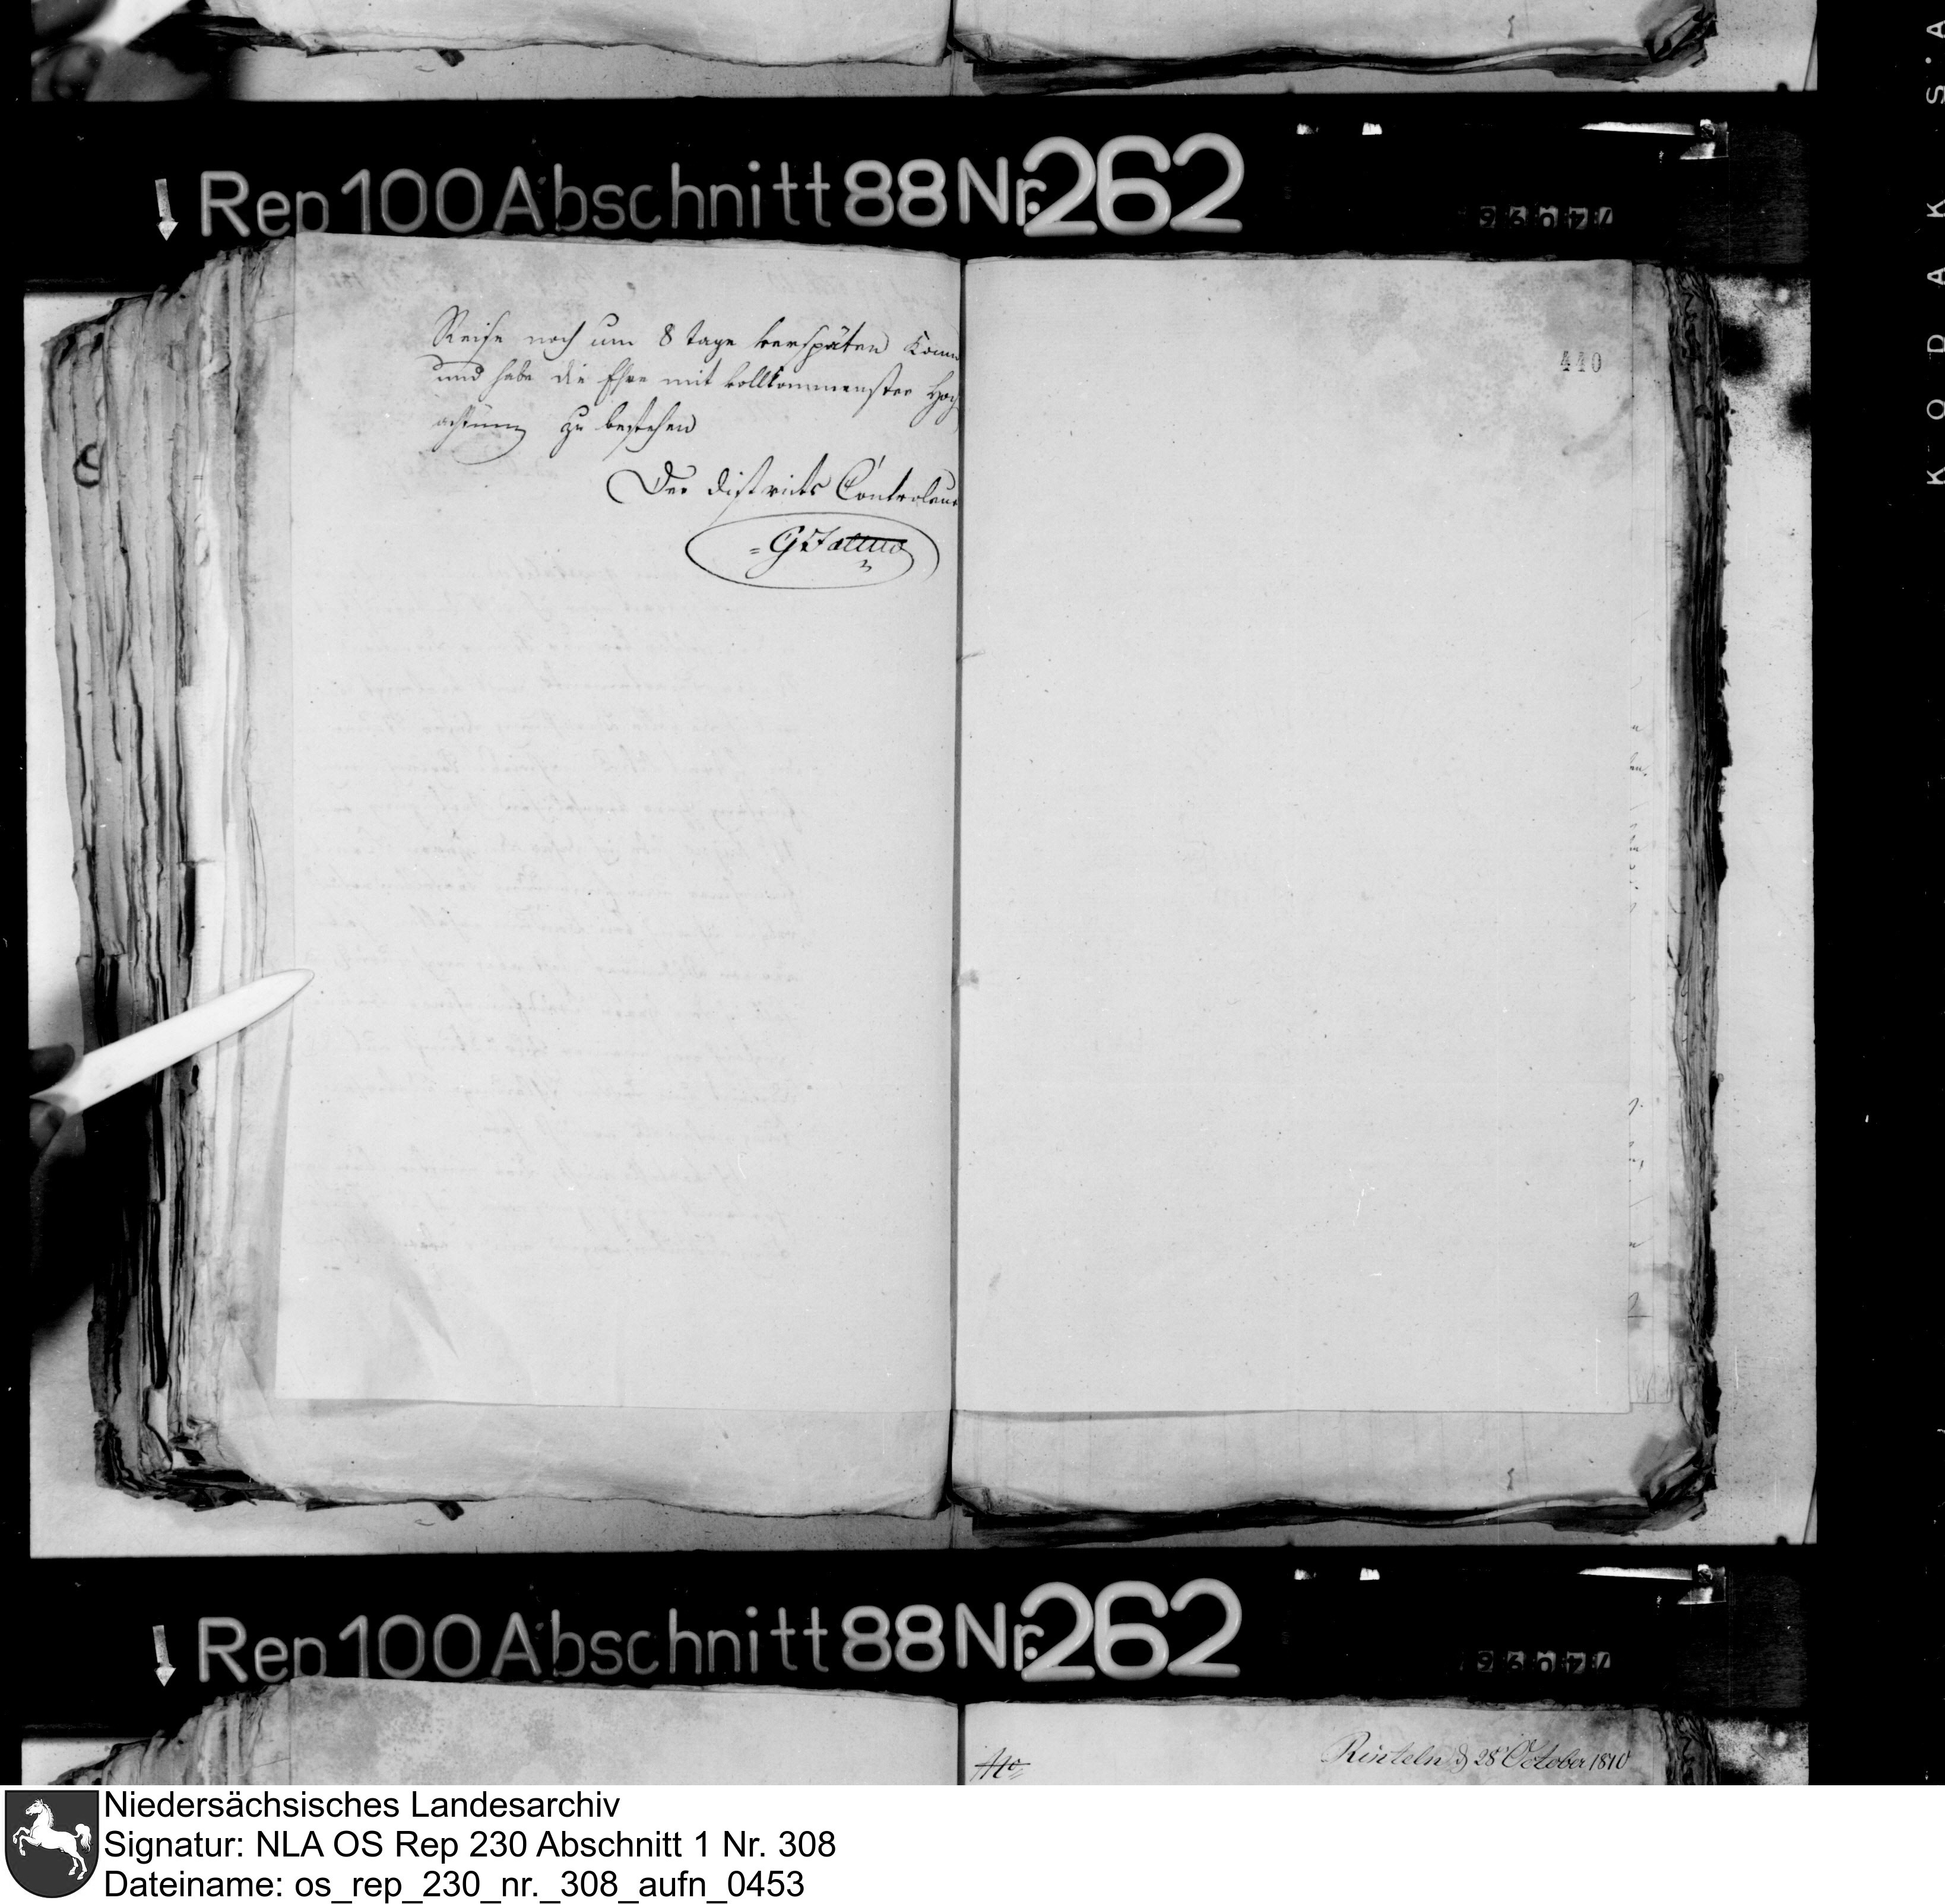 Rep 100 Abschnitt 88 Nr. 262
Reise noch um 8 tage verspäten
und habe die Ehre mit vollkommenster Hoch
achtung zu bestehen
Der districts Controleur
440
Rep 100 Abschnitt 88 Nr. 262
Rinteln d 28 October 1810
KODAK S.A
Niedersächsisches Landesarchiv
Signatur: NLA OS Rep 230 Abschnitt 1 Nr. 308
Dateiname: os_rep_230_nr._308_aufn_0453